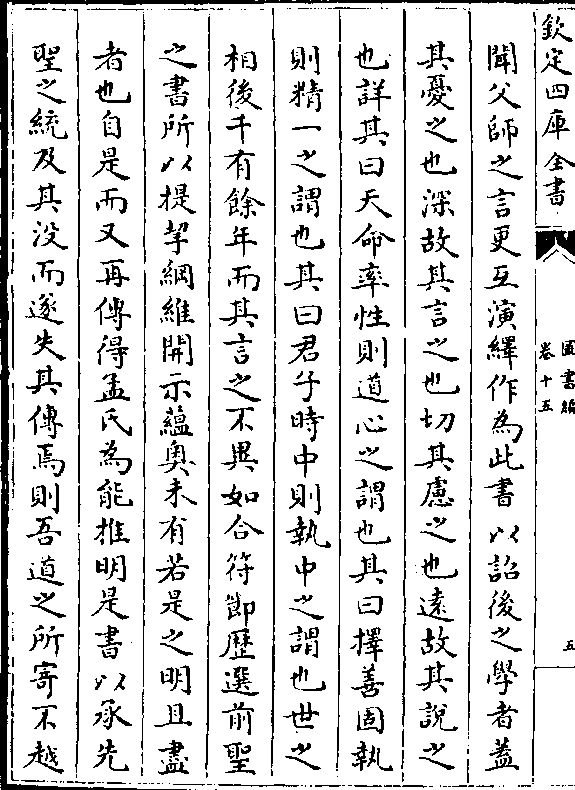 欽定四庫全書
圖書編
卷十五
五
聞父師之言更互演繹作為此書以詔後之學者蓋
其憂之也深故其言之也切其慮之也遠故其說之
也詳其曰天命率性則道心之謂也其曰擇善固執
則精一之謂也其曰君子時中則執中之謂也世之
相後千有餘年而其言之不異如合符節歷選前聖
之書所以提挈綱維開示蘊奥未有若是之明且盡
者也自是而又再傳得孟氏為能推明是書以承先
聖之統及其没而遂失其傳焉則吾道之所寄不越